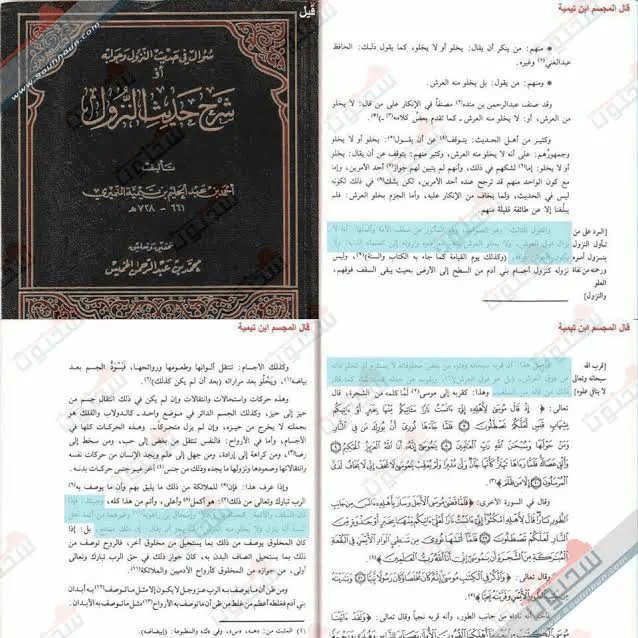 قيل
سؤال في حديث النزول وجوابه
أو
شرح حديث النزول
تأليف
أحمد بن عبد الحليم بن تيمية النميري
٦٦١ - ٧٢٨ هـ
تحقيق وتعليق
محمد بن عبد الرحمن الخميس
قال المجسم ابن تيمية
منهم: من ينكر أن يقال: يخلو أو لا يخلو، كما يقول ذلك: الحافظ
عبدالغني(١) وغيره.
ومنهم: من يقول: بل يخلو منه العرش.
وقد صنف عبدالرحمن بن منده(٢) مصنفاً في الإنكار على من قال: لا يخلو
من العرش، أو: لا يخلو منه العرش - كما تقدم بعض كلامه(٣).
وكثير من أهل الحديث: يتوقف(٤) عن أن يقول(٥): يخلو أو لا يخلو
وجمهورهم: على أنه لا يخلو منه العرش، وكثير منهم: يتوقف عن أن يقال: يخلو
أو لا يخلو: إما(٦) لشكهم في ذلك، وأنهم لم يتبين لهم جواز(٧) أحد الأمرين، وإما
مع كون الواحد منهم قد ترجح عنده أحد الأمرين، لكن يشك(٨) في ذلك لكونه
ليس في الحديث، ولما يخاف من الإنكار عليه، وأما الجزم بخلو العرش: فلم
يبلغنا إلا عن طائفة قليلة منهم
[الرد على من
تأول النزول
بنزول أمره
ورحمته من نفاة
العلو
والنزول]
والقول الثالث - وهو الصواب، وهو المأثور عن سلف الأمة وأئمتها: أنه لا
يزال فوق العرش، ولا يخلو العرش منه، مع دنوه ونزوله إلى السماء الدنيا، ولا
يكون العرش فوقه، (وكذلك يوم القيامة كما جاء به الكتاب والسنة)(٩)، وليس
نزوله كنزول أجسام بني آدم من السطح إلى الأرض بحيث يبقى السقف فوقهم،
قال المجسم ابن تيمية
وكذلك الأجسام: تنتقل ألوانها وطعومها وروائحها، فيسود الجسم بعد
بياضه(١)، ويحلو بعد مرارته (بعد أن لم يكن كذلك)(٢).
وهذه حركات واستحالات وانتقالات وإن لم يكن في ذلك انتقال جسم من
حيز إلى حيز، وكذلك الجسم الدائر في موضع واحد - كالدولاب والفلك هو
بجملته لا يخرج من حيزه، وإن لم يزل متحركاً. وهذه الحركات كلها في
الأجسام، وأما في الأرواح: فالنفس تنتقل من بغض إلى حب، ومن سخط إلى
رضا، ومن كراهة إلى إرادة، ومن جهل إلى علم ويجد الإنسان من حركات نفسه
وانتقالاتها وصعودها ونزولها ما يجده وذلك من جنس آخر غير جنس حركات بدنه.
وإذا عرف هذا: فإن(٣) للملائكة من ذلك ما يليق بهم وأن ما يوصف به
الرب تبارك وتعالى من ذلك: هو أكمل وأعلى، وأتم من هذا كله،
بل: إذا
كان المخلوق يوصف من ذلك بما يستحيل من مخلوق آخر، فالروح توصف من
ذلك بما يستحيل اتصاف البدن به، كان جواز ذلك في حق الرب تبارك وتعالى
أولى، من جوازه من المخلوق كأرواح الآدميين والملائكة.
ومن ظن أن ما يوصف به الرب عز وجل لا يكون إلا مثل ما توصف به أبدان
بني آدم فغلطه أعظم من غلط من ظن أن ما توصف به الأرواح مثل ما توصف به الأبدان.
قال المجسم ابن تيمية
[قرب الله
سبحانه وتعالى
لا ينافي علوه]
وأصل هذا: أن قربه سبحانه ودنوه من بعض مخلوقاته لا يستلزم أن تخلو ذاته
من فوق العرش، (بل هو فوق العرش)، ويقرب من خلقه كيف شاء، كما قال
ذلك من قاله من السلف، وهذا: كقربه إلى موسى لما كلمه من الشجرة، قال
تعالى: ﴿ إِذْ قَالَ مُوسَى لِأَهْلِهِ إِنِّي آنَسْتُ نَارًا سَآتِيكُمْ مِنْهَا بِخَبَرٍ أَوْ آتِيكُمْ
بِشِهَابٍ قَبَسٍ لَعَلَّكُمْ تَصْطَلُونَ فَلَمَّا جَاءَهَا نُودِيَ أَنْ بُورِكَ مَنْ فِي النَّارِ
وَمَنْ حَوْلَهَا وَسُبْحَانَ اللَّهِ رَبِّ الْعَالَمِينَ يَا مُوسَى إِنَّهُ أَنَا اللَّهُ الْعَزِيزُ الْحَكِيمُ
وَأَلْقِ عَصَاكَ فَلَمَّا رَآهَا تَهْتَزُّ كَأَنَّهَا جَانٌّ وَلَّى مُدْبِرًا وَلَمْ يُعَقِّبْ يَا مُوسَى لَا تَخَفْ إِنِّي لَا يَخَافُ لَدَيَّ
وقال في السورة الأخرى: ﴿ فَلَمَّا قَضَى مُوسَى الْأَجَلَ وَسَارَ بِأَهْلِهِ آنَسَ مِنْ جَانِبِ
الطُّورِ نَارًا قَالَ لِأَهْلِهِ امْكُثُوا إِنِّي آنَسْتُ نَارًا لَعَلِّي آتِيكُمْ مِنْهَا بِخَبَرٍ أَوْ جَذْوَةٍ مِنَ
النَّارِ لَعَلَّكُمْ تَصْطَلُونَ فَلَمَّا أَتَاهَا نُودِيَ مِنْ شَاطِئِ الْوَادِ الْأَيْمَنِ فِي الْبُقْعَةِ
الْمُبَارَكَةِ مِنَ الشَّجَرَةِ أَنْ يَا مُوسَى إِنِّي أَنَا اللَّهُ رَبُّ الْعَالَمِينَ ﴾
وقال تعالى: ﴿ وَاذْكُرْ فِي الْكِتَابِ مُوسَى إِنَّهُ كَانَ مُخْلَصًا وَكَانَ رَسُولًا نَبِيًّا وَنَادَيْنَاهُ
مِنْ جَانِبِ الطُّورِ الْأَيْمَنِ وَقَرَّبْنَاهُ نَجِيًّا ﴾